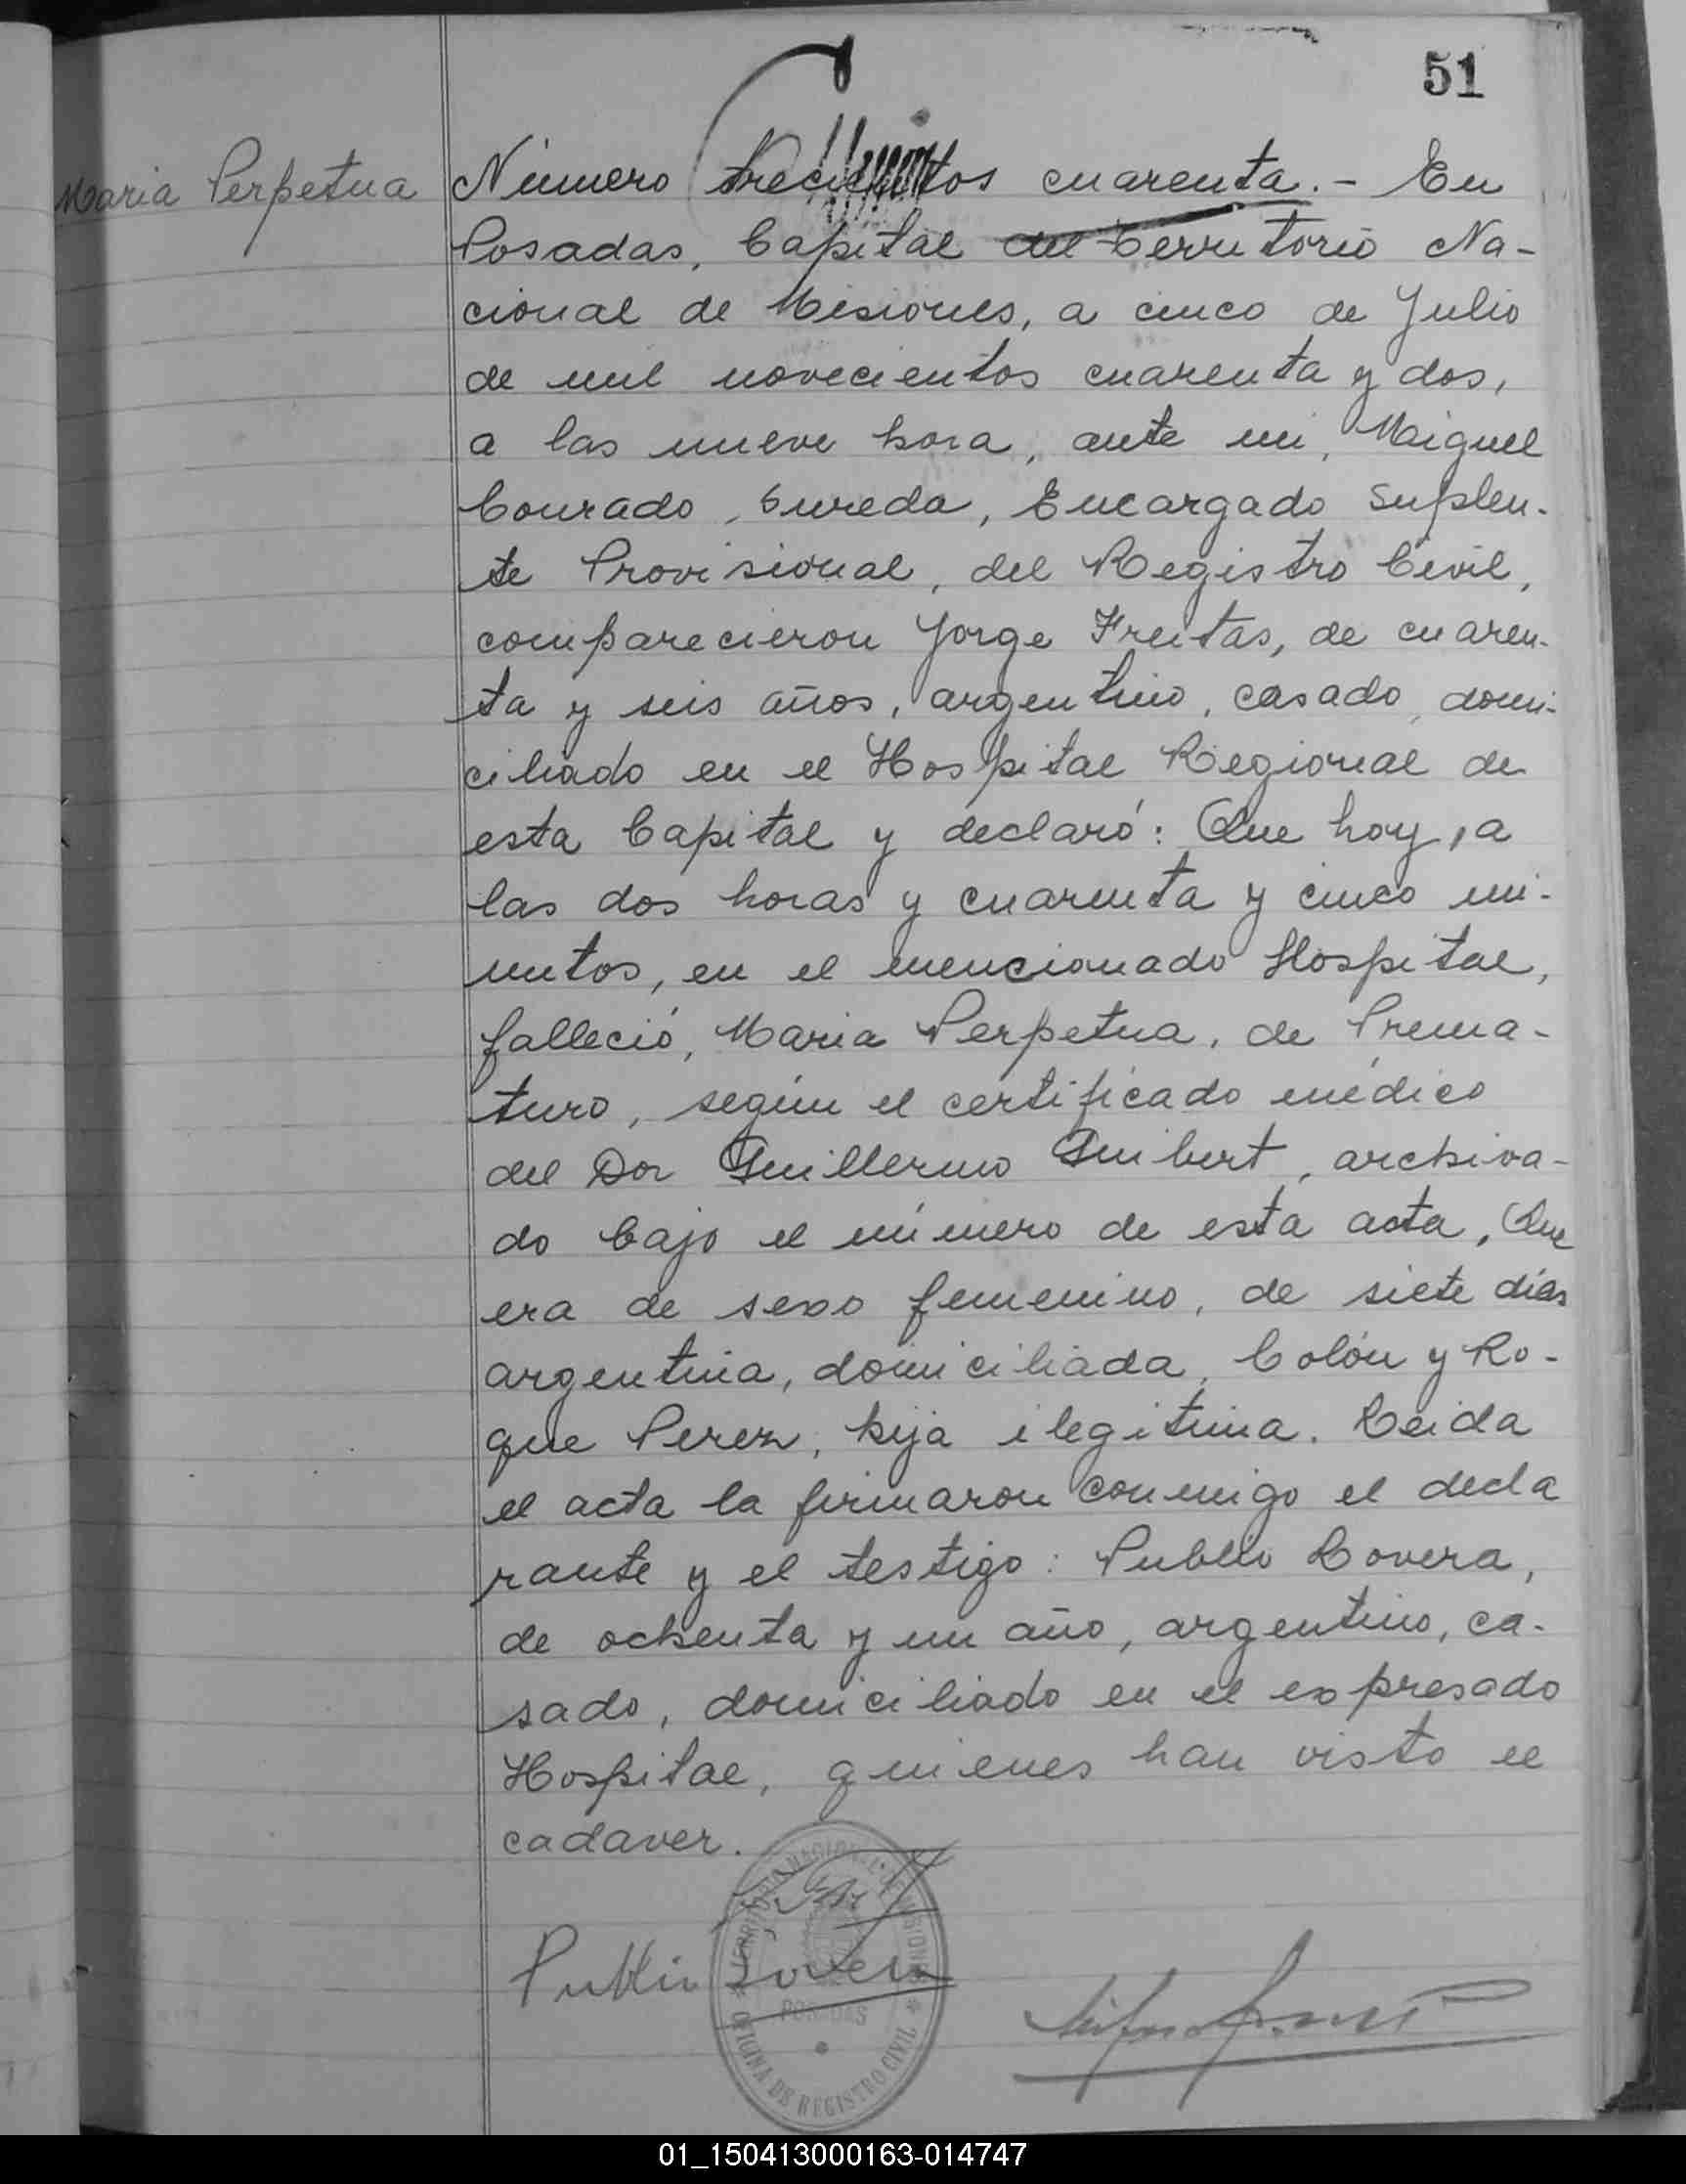 51
Maria Perpetua
Número trecientos cuarenta. - En
Posadas, Capital del Territorio Na-
cional de Misiones, a cinco de Julio
de mil novecientos cuarenta y dos,
a las nueve hora, ante mi, Miguel
Conrado Sureda, Encargado Suplen-
te Provisional, del Registro Civil,
comparecieron Jorge Freitas, de cuaren-
ta y seis años, argentino, casado, domi-
ciliado en el Hospital Regional de
esta Capital y declaró: Que hoy, a
las dos horas y cuarenta y cinco mi-
nutos, en el mencionado Hospital,
falleció, Maria Perpetua, de Prema-
turo, según el certificado médico
del Dor Guillermo Guibert, archiva-
do bajo el número de esta acta, Que
era de sexo femenino, de siete días
argentina, domiciliada, Colón y Ro-
que Perez, hija ilegitima. Leida
el acta la firmaron conmigo el decla
rante y el testigo: Publio Lovera,
de ochenta y un año, argentino, ca-
sado, domiciliado en el expresado
Hospital, quienes han visto el
cadaver.
TERRITORIO NACIONAL DE MISIONES
Publio Lovera
POSADAS
OFICINA DE REGISTRO CIVIL
01_150413000163-014747